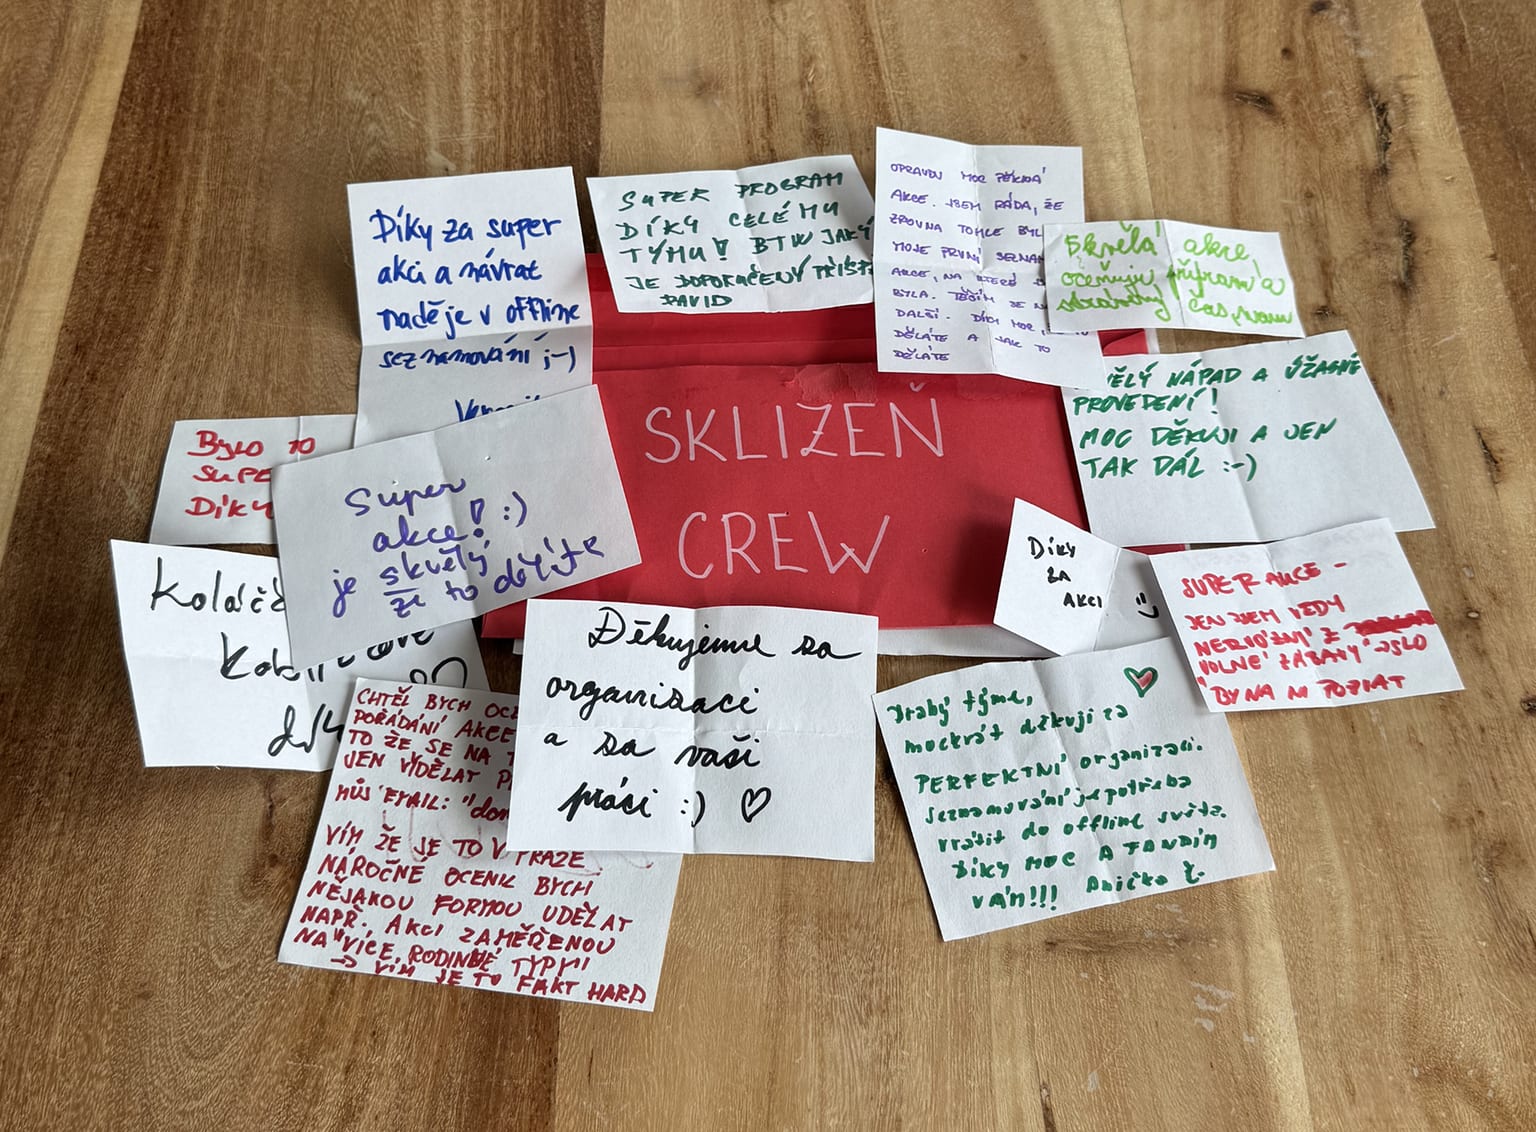 Díky za super
akci a návrat
naděje v offline
seznamování ;-)
SUPER PROGRAM
DÍKY CELÉMU
TÝMU! BTW JAKÝ
JE DOPORUČENÝ PŘÍŠT
DAVID
OPRAVDU MOC PĚKNÁ
AKCE. JSEM RÁDA, ŽE
ZROVNA TOHLE BYL
MOJE PRVNÍ SEZNAM
AKCE, NA KTERÉ
BYLA. TĚŠÍM SE N
DALŠÍ. DÍKY MOC,
DĚLÁTE A JAK TO
DĚLÁTE
Skvělá akce,
oceňuji přípravu a
strávený čas,
VĚLÝ NÁPAD A ÚŽASNÉ
PROVEDENÍ!
MOC DĚKUJI A JEN
TAK DÁL :-)
SKLIZEŇ
CREW
BYLO TO
SUPE
DÍKY
Super
akce! :)
je skvělý
že to děláte
Díky
ZA
AKCI
SUPER AKCE -
JEN JSEM VŽDY
NERVÓZNÍ Z
"VOLNÉ ZÁBAVY"
Koláče
Děkujeme za
organizaci
a za vaši
práci :) ♡
CHTĚL BYCH OCE
POŘÁDÁNÍ AKCE
TO ŽE SE NA T
JEN VYDĚLAT P
MŮJ EMAIL: "dom
VÍM ŽE JE TO V PRAZE
NÁROČNÉ OCENIL BYCH
NĚJAKOU FORMOU UDĚLAT
NAPŘ. AKCI ZAMĚŘENOU
NA "VÍCE RODINNÉ TYPY"
→ VÍM JE TO FAKT HARD
Drahý týme,
mockrát děkuji za
PERFEKTNÍ organizaci.
Seznamování je potřeba
vrátit do offline světa.
Díky moc A FANDÍM
VÁM!!! Anička Ž.